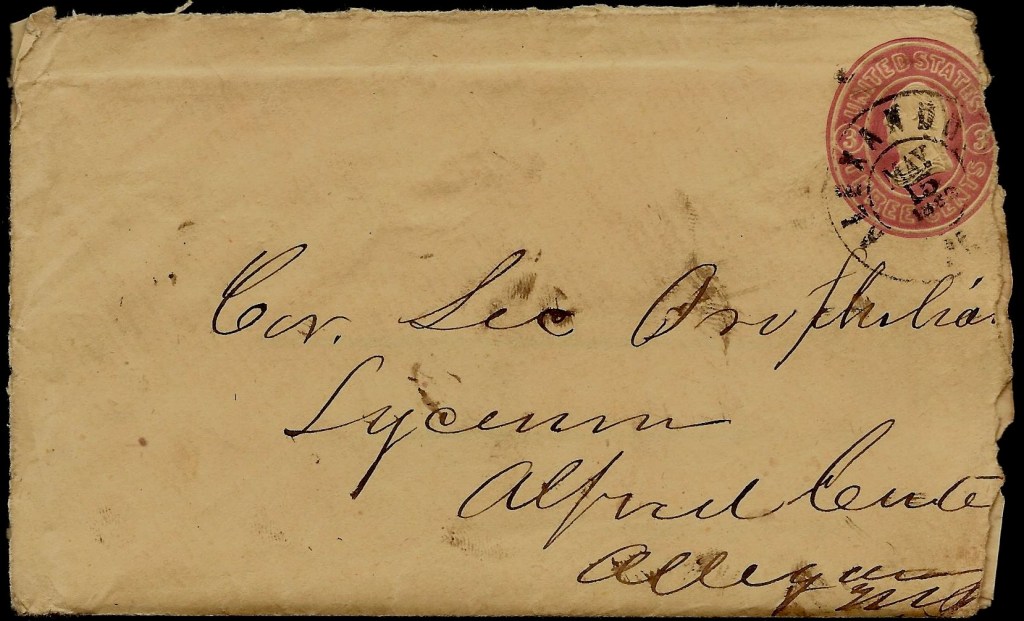 UNITED STATES
3 3
THREE CENTS
ALEXAND
MAY
15
Cor. Sec Orophilia
Lyceum
Alfred Cente
Allegan